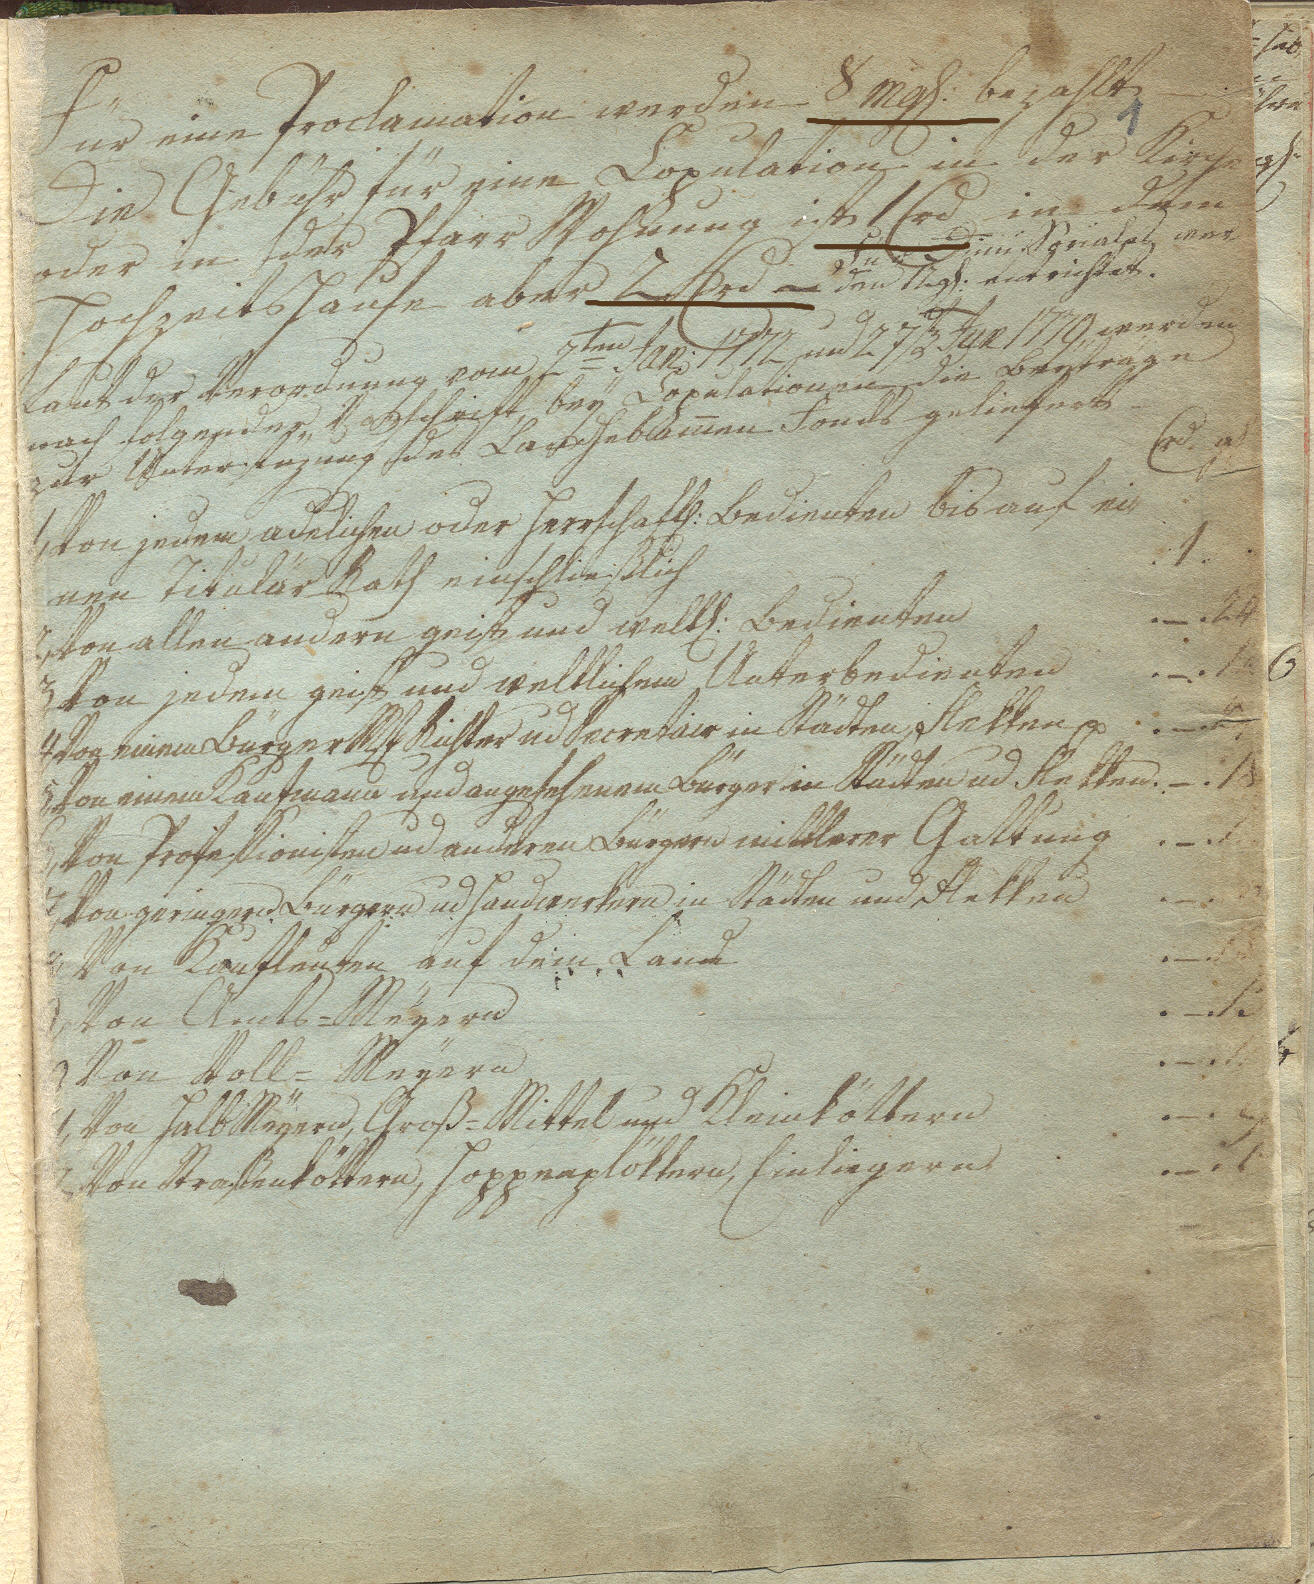 Für eine Proclamation werden 8 mgf: bezahlt
1
Die Gebühr für eine Copulation in der Kirche
oder in der Pfarr Wohnung ist 1 Rd in dem
Hochzeitshause aber 2 Rd – Für Dimissoriales wer
den mgf: entrichtet.
Laut der Verordnung vom 2ten Jan: 1772 und 27 1779, werden
nach folgender Vorschrift, bey Copulationen die Beyträge
zur Unterstützung des Landhebammen Fonds geliefert
Rd. g
1, Von jedem adelichen oder herrschaftl: Bedienten bis auf ei
nen Titulär Rath einschließlich . 1 .
2, Von allen andern geist und weltl: Bedienten . – . 24
3 Von jedem geist und weltlichem Unterbedienten . – .
4 Von einem Bürger Mstr Richter ud Secretair in Städten, Flekken . – .
5 Von einem Kaufmann und angesehenem Bürger in Städten ud Flekken . – .
6, Von Professionisten ud anderen Bürgern mittlerer Gattung . – .
7, Von geringern Bürgern ud Handwerkern in Städten und Flekken . – .
Von Kaufleuten auf dem Lande . – .
Von Amts=Meyern . – .
Von Voll=Meyern . – .
1, Von Halb Meyern, Groß=Mittel und Kleinköttern . – .
Von Straßenköttern, Hoppenplöktern, Einliegern . – .